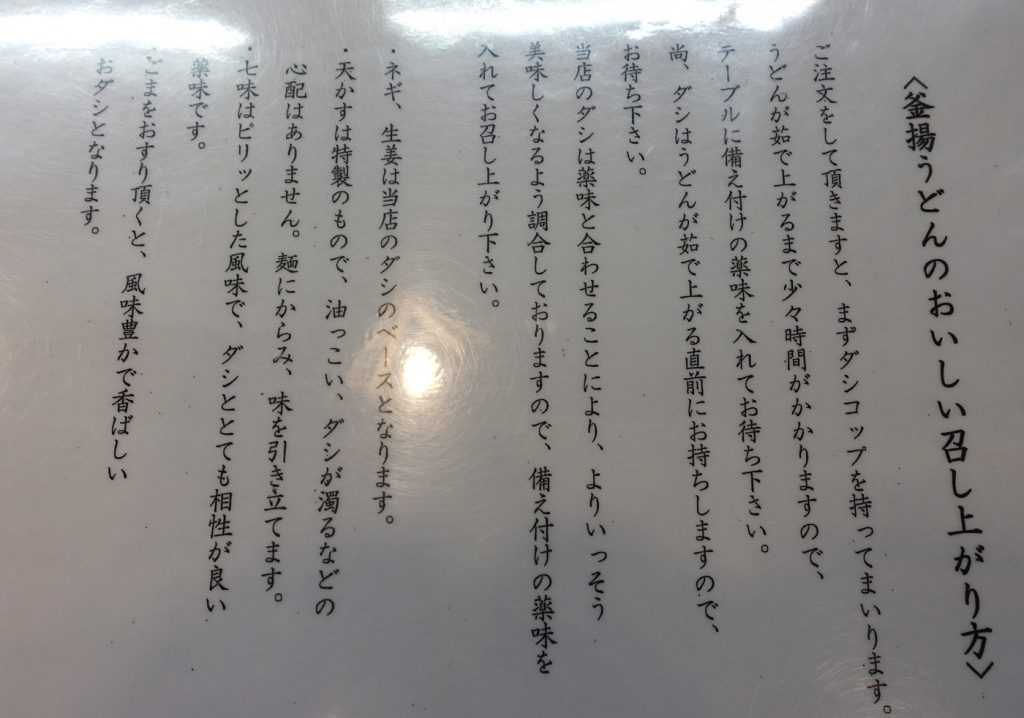 〈釜揚うどんのおいしい召し上がり方〉
ご注文をして頂きますと、まずダシコップを持ってまいります。
うどんが茹で上がるまで少々時間がかかりますので、
テーブルに備え付けの薬味を入れてお待ち下さい。
尚、ダシはうどんが茹で上がる直前にお持ちしますので、
お待ち下さい。
当店のダシは薬味と合わせることにより、よりいっそう
美味しくなるよう調合しておりますので、備え付けの薬味を
入れてお召し上がり下さい。
・ネギ、生姜は当店のダシのベースとなります。
・天かすは特製のもので、油っこい、ダシが濁るなどの
心配はありません。麺にからみ、味を引き立てます。
・七味はピリッとした風味で、ダシととても相性が良い
薬味です。
・ごまをおすり頂くと、風味豊かで香ばしい
おダシとなります。